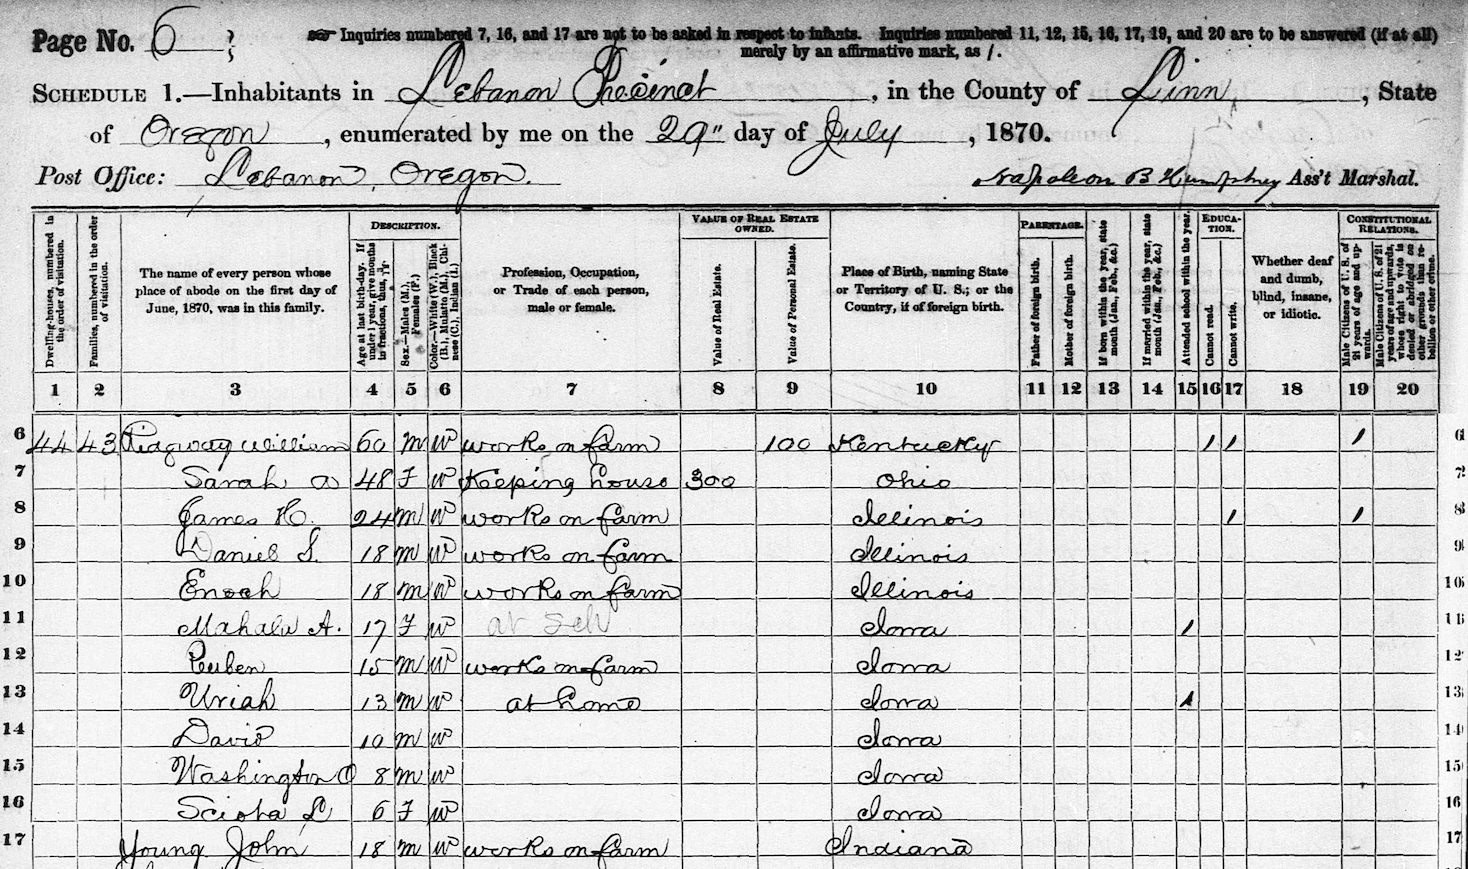 Page No. 6
☞ Inquiries numbered 7, 16, and 17 are not to be asked in respect to infants. Inquiries numbered 11, 12, 15, 16, 17, 19, and 20 are to be answered (if at all)
merely by an affirmative mark, as /.
SCHEDULE 1.—Inhabitants in Lebanon Precinct, in the County of Linn, State
of Oregon, enumerated by me on the 29" day of July, 1870.
Post Office: Lebanon, Oregon. Napoleon B Humphrey Ass't Marshal.
DESCRIPTION. VALUE OF REAL ESTATE OWNED. PARENTAGE. EDUCATION. CONSTITUTIONAL RELATIONS.
Dwelling-houses, numbered in the order of visitation.
Families, numbered in the order of visitation.
The name of every person whose place of abode on the first day of June, 1870, was in this family.
Age at last birth-day. If under 1 year, give months in fractions, thus, 3/12.
Sex.—Males (M.), Females (F.)
Color.—White (W.), Black (B.), Mulatto (M.), Chinese (C.), Indian (I.)
Profession, Occupation, or Trade of each person, male or female.
Value of Real Estate.
Value of Personal Estate.
Place of Birth, naming State or Territory of U. S.; or the Country, if of foreign birth.
Father of foreign birth.
Mother of foreign birth.
If born within the year, state month (Jan., Feb., &c.)
If married within the year, state month (Jan., Feb., &c.)
Attended school within the year.
Cannot read.
Cannot write.
Whether deaf and dumb, blind, insane, or idiotic.
Male Citizens of U. S. of 21 years of age and upwards.
Male Citizens of U. S. of 21 years of age and upwards, whose right to vote is denied or abridged on other grounds than rebellion or other crime.
1 2 3 4 5 6 7 8 9 10 11 12 13 14 15 16 17 18 19 20
6 44 43 Ridgway William 60 M W works on farm 100 Kentucky / / / 6
7 Sarah A 48 F W Keeping house 300 Ohio 7
8 James H. 24 M W works on farm Illinois / / 8
9 Daniel S. 18 M W works on farm Illinois 9
10 Enoch 18 M W works on farm Illinois 10
11 Mahala A. 17 F W at Sch Iowa / 11
12 Reuben 15 M W works on farm Iowa 12
13 Uriah 13 M W at home Iowa / 13
14 David 10 M W Iowa 14
15 Washington O 8 M W Iowa 15
16 Sciota L 6 F W Iowa 16
17 Young John 18 M W works on farm Indiana 17